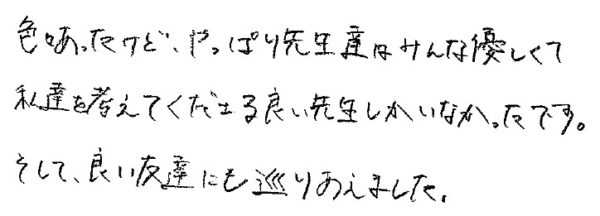 色々あったけど、やっぱり先生達はみんな優しくて
私達を考えてくださる良い先生しかいなかったです。
そして、良い友達にも巡りあえました。